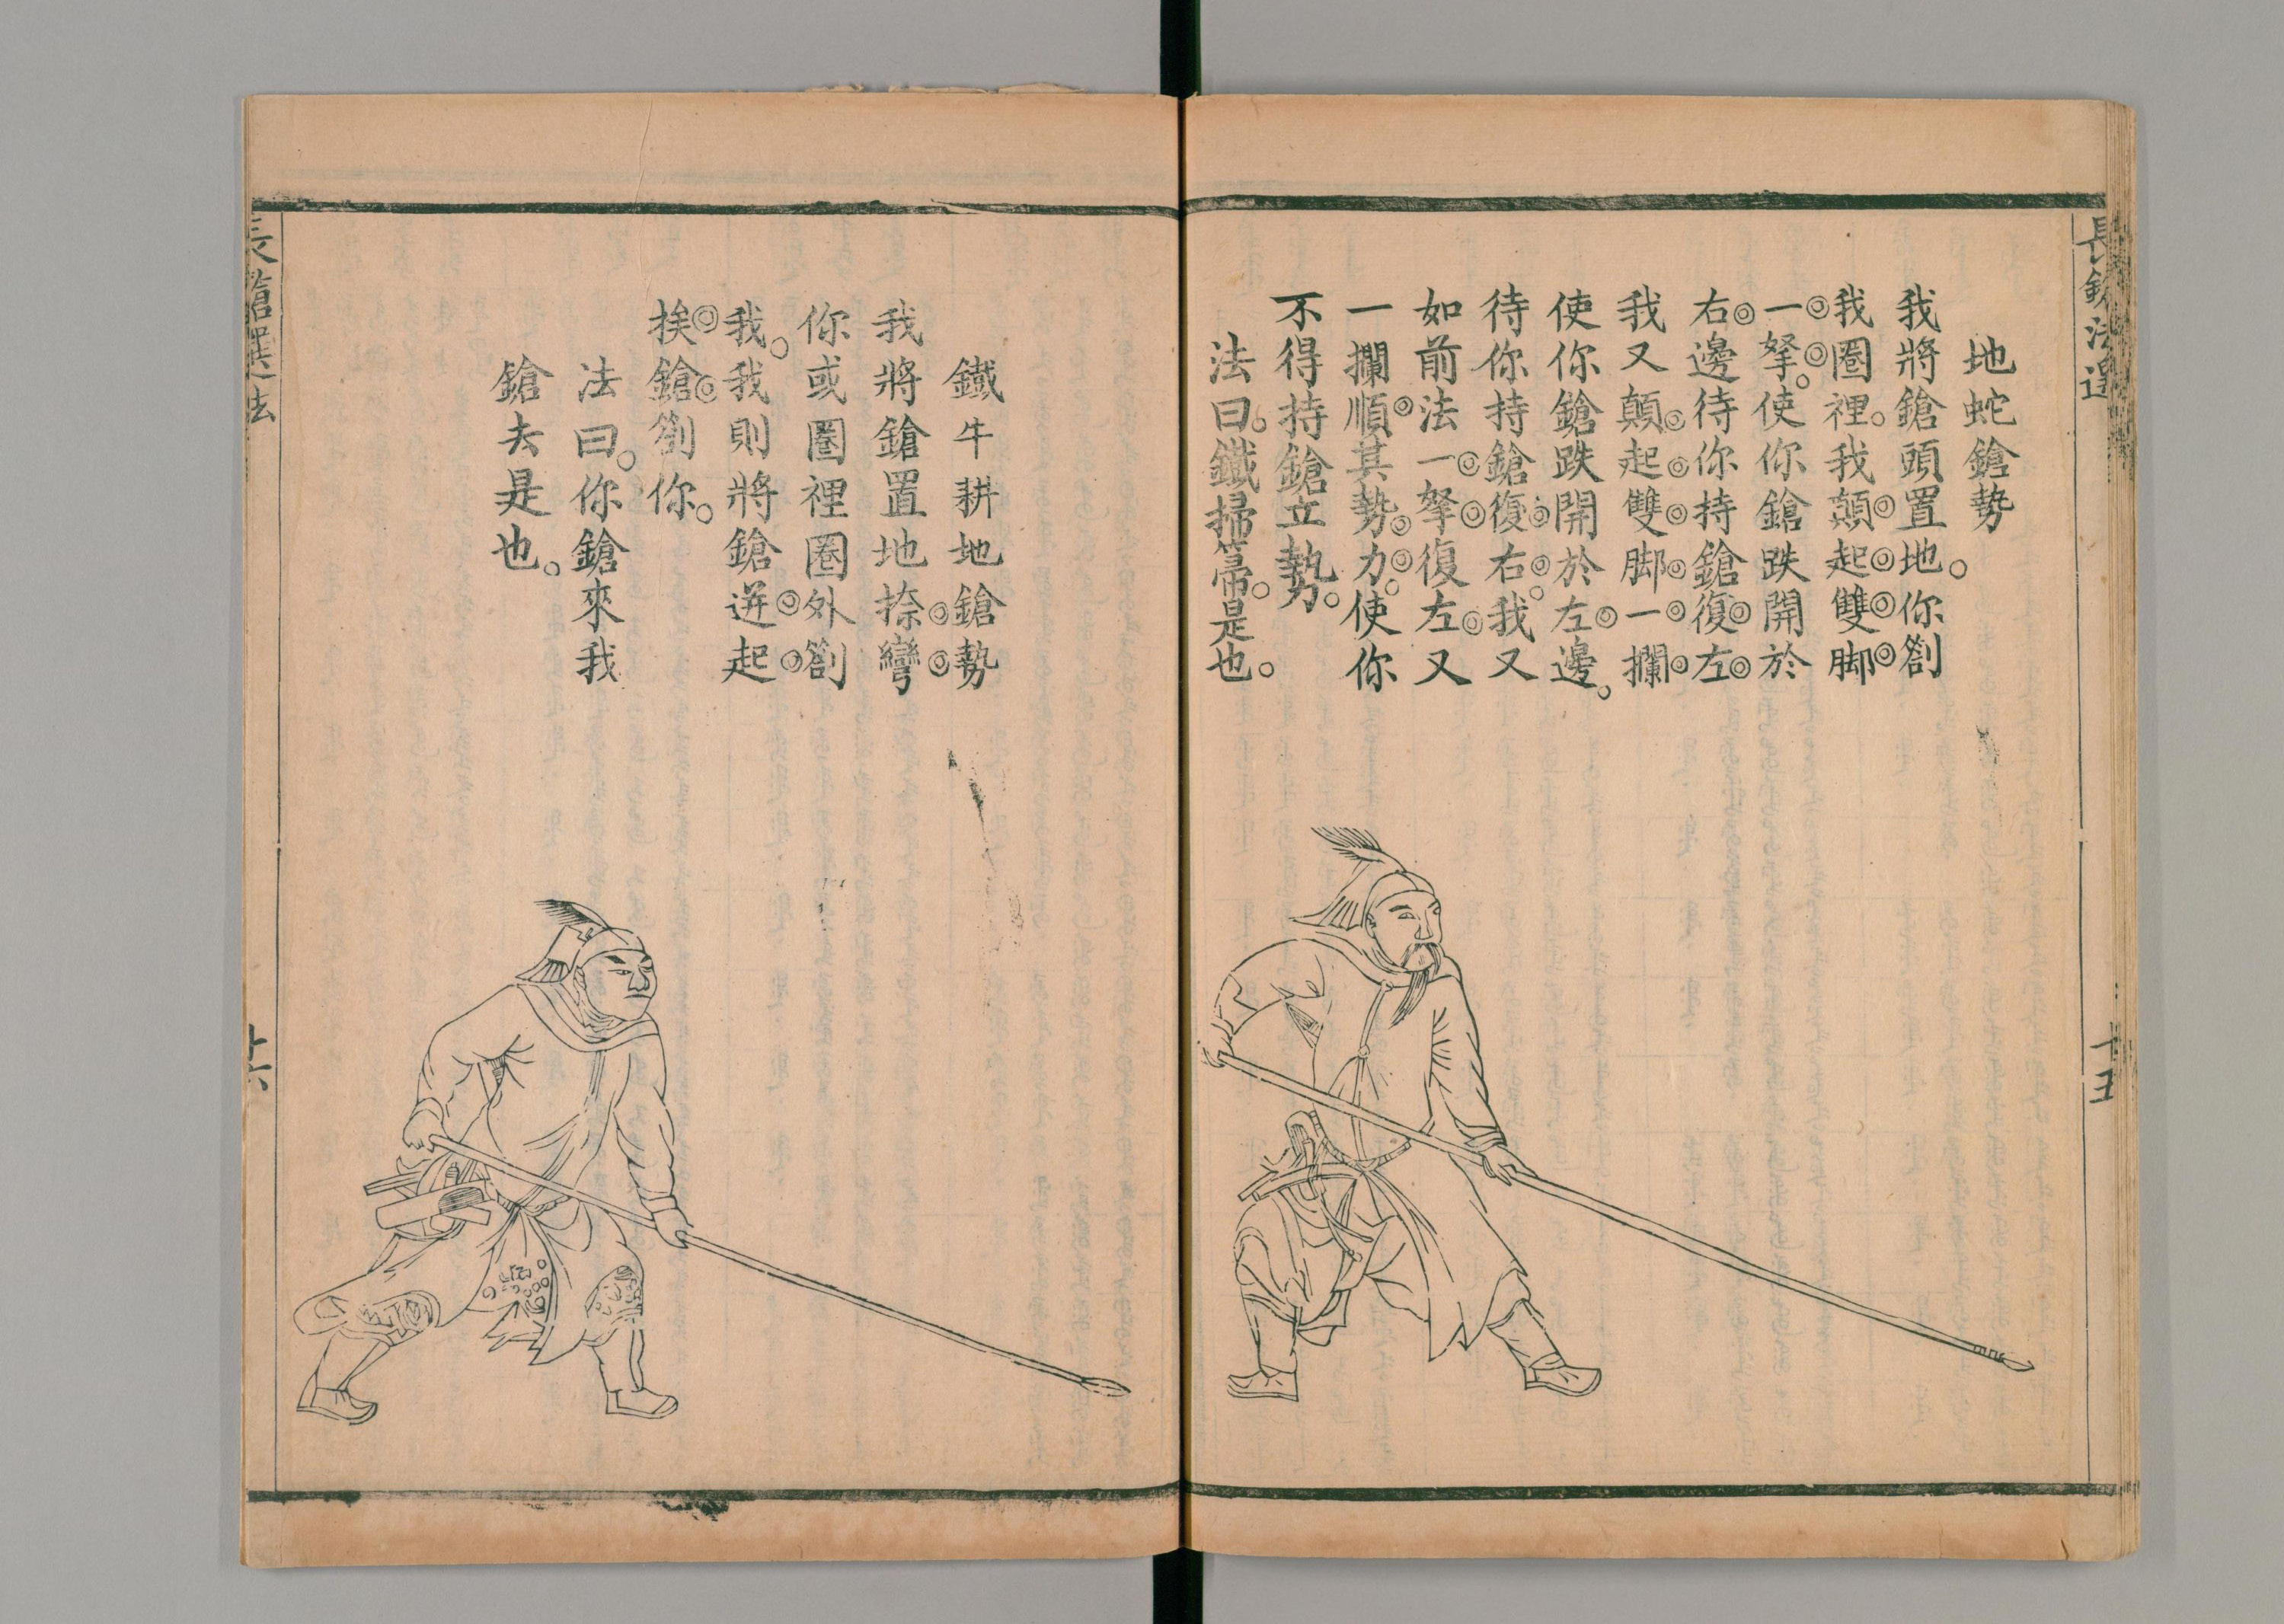 長鎗法選
地蛇鎗勢。
我將鎗頭置地。你劄
我圈裡。我顛起雙脚
一拏。使你鎗跌開於
右邊待你持鎗復左
我又顛起雙脚一攔
使你鎗跌開於左邊。
待你持鎗復右。我又
如前法一拏復左又
一攔順其勢力。使你
不得持鎗立勢。
法曰。鐵掃箒。是也。
十五
鐵牛耕地鎗勢
我將鎗置地捺彎
你或圈裡圈外劄
我。我則將鎗迸起
挨鎗劄你。
法曰。你鎗來我
鎗去是也。
長鎗選法
十六